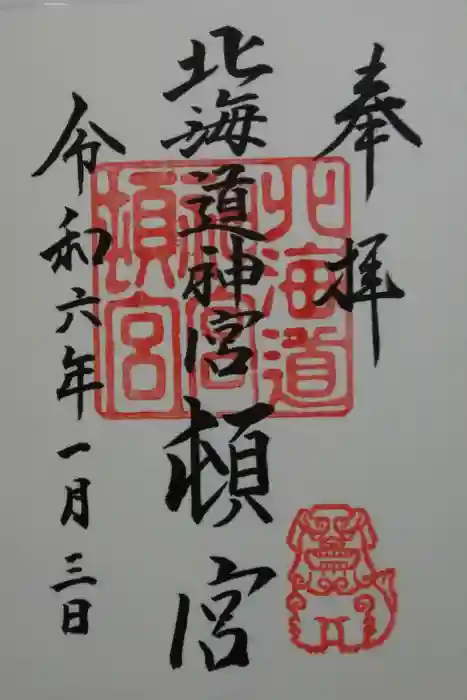 奉拝
北海道神宮頓宮
令和六年一月三日
北海道
神宮
頓宮